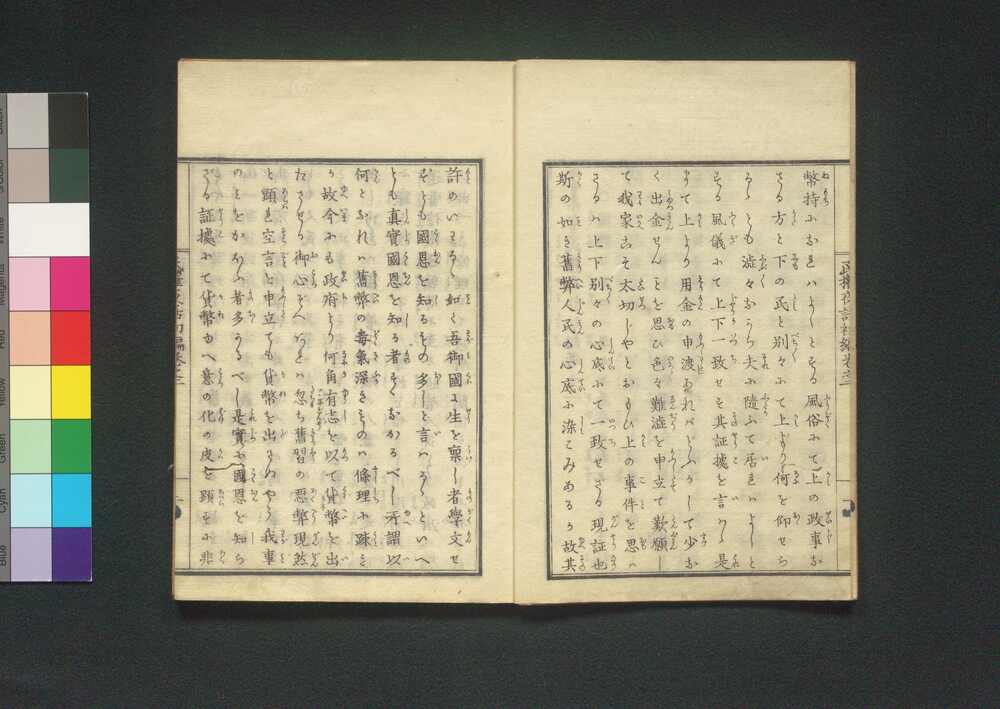 幣持にお連ハよしとする風俗にて上の政事な
さる方と下の民と別々にて上より何を仰せら
るゝとも澁々ながら夫に隨ふて居連ハよしと
する風儀にて上下一致せ其証據を言ハゞ是
まて上より用金の申渡あれバどふかして少な
く出金せんことを思ひ色々難澁を申立て歎願し
て我家こそ太切じやとおもひ上の事件を思ハ
さるハ上下別々の心底にて一致せざる現証也
斯の如き舊弊人民の心底に染こみある故其
許のいはるゝ如く吾御國に生を稟し者學文せ
ずとも國恩を知るもの多しと言はるゝといへ
とも真實國恩を知る者すくなかるべし所謂以
何となれハ舊幣の毒氣深きものハ條理に疎き
が故今にも政府より何角有志を以て貨幣を出
たさせる御心ぞへあらバ忽ち舊習の惡弊現然
と顕れ空言と申立ても貨幣を出さぬやう我事
のミをかかハる者多かるべし是實に國恩を知ら
ざる証據にて貨幣ゆへ意の化の皮を顕すに非
Blue
Cyan
Green
Yellow
Red
Magenta
White
Black